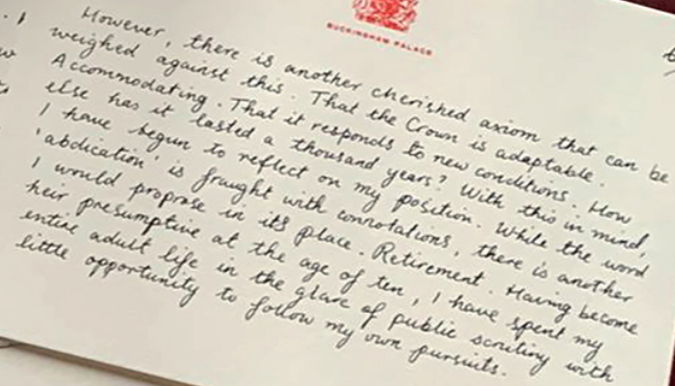 BUCKINGHAM PALACE
However, there is another cherished axiom that can be
weighed against this. That the Crown is adaptable.
Accommodating. That it responds to new conditions. How
else has it lasted a thousand years? With this in mind,
I have begun to reflect on my position. While the word
'abdication' is fraught with connotations, there is another
I would proprose in its place. Retirement. Having become
heir presumptive at the age of ten, I have spent my
entire adult life in the glare of public scrutiny with
little opportunity to follow my own pursuits.